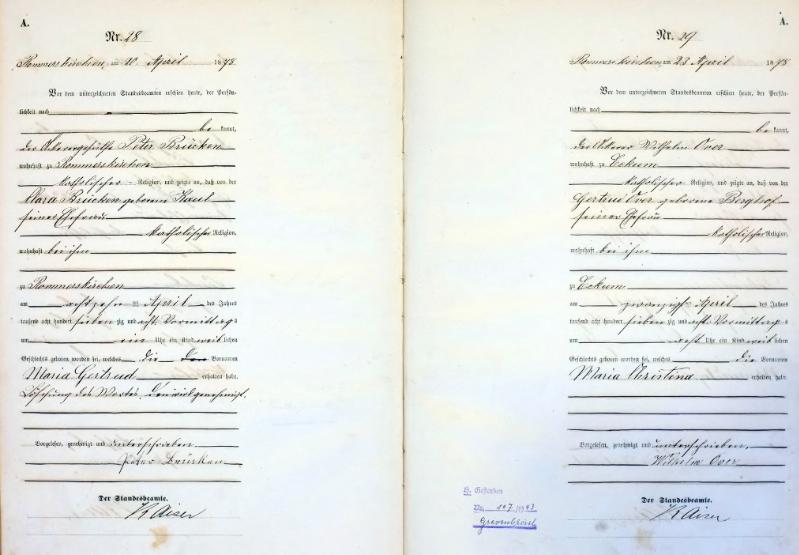 A.
Nr. 28
Rommerskirchen, am 20 April 1878
Vor dem unterzeichneten Standesbeamten erschien heute, der Persön-
lichkeit nach
be kannt,
der Ackergehülfe Peter Brücken
wohnhaft zu Rommerskirchen
katholischer Religion, und zeigte an, daß von der
Clara Brücken geborene Kaul
seiner Ehefrau
katholischer Religion,
wohnhaft bei ihm
zu Rommerskirchen
am achtzehn ten April des Jahres
tausend acht hundert sieben zig und acht Vormittag s
um ein Uhr ein Kind weib lichen
Geschlechts geboren worden sei, welches die den Vornamen
Maria Gertrud erhalten habe.
Löschung des Wortes den wird genehmigt.
Vorgelesen, genehmigt und unterschrieben
Peter Brücken
Der Standesbeamte.
Kaiser
A.
Nr. 29
Rommerskirchen, am 23 April 1878
Vor dem unterzeichneten Standesbeamten erschien heute, der Persön-
lichkeit nach
be kannt,
der Ackerer Wilhelm Over
wohnhaft zu Eckum
katholischer Religion, und zeigte an, daß von der
Gertrud Over geborene Berghof
seiner Ehefrau
katholischer Religion,
wohnhaft bei ihm
zu Eckum
am zwanzigst April des Jahres
tausend acht hundert sieben zig und acht Vormittag s
um acht Uhr ein Kind weib lichen
Geschlechts geboren worden sei, welches die Vornamen
Maria Christina erhalten habe.
Vorgelesen, genehmigt und unterschrieben,
Wilhelm Over
Der Standesbeamte.
Kaiser
Gestorben
Nr. 107
Grevenbroich